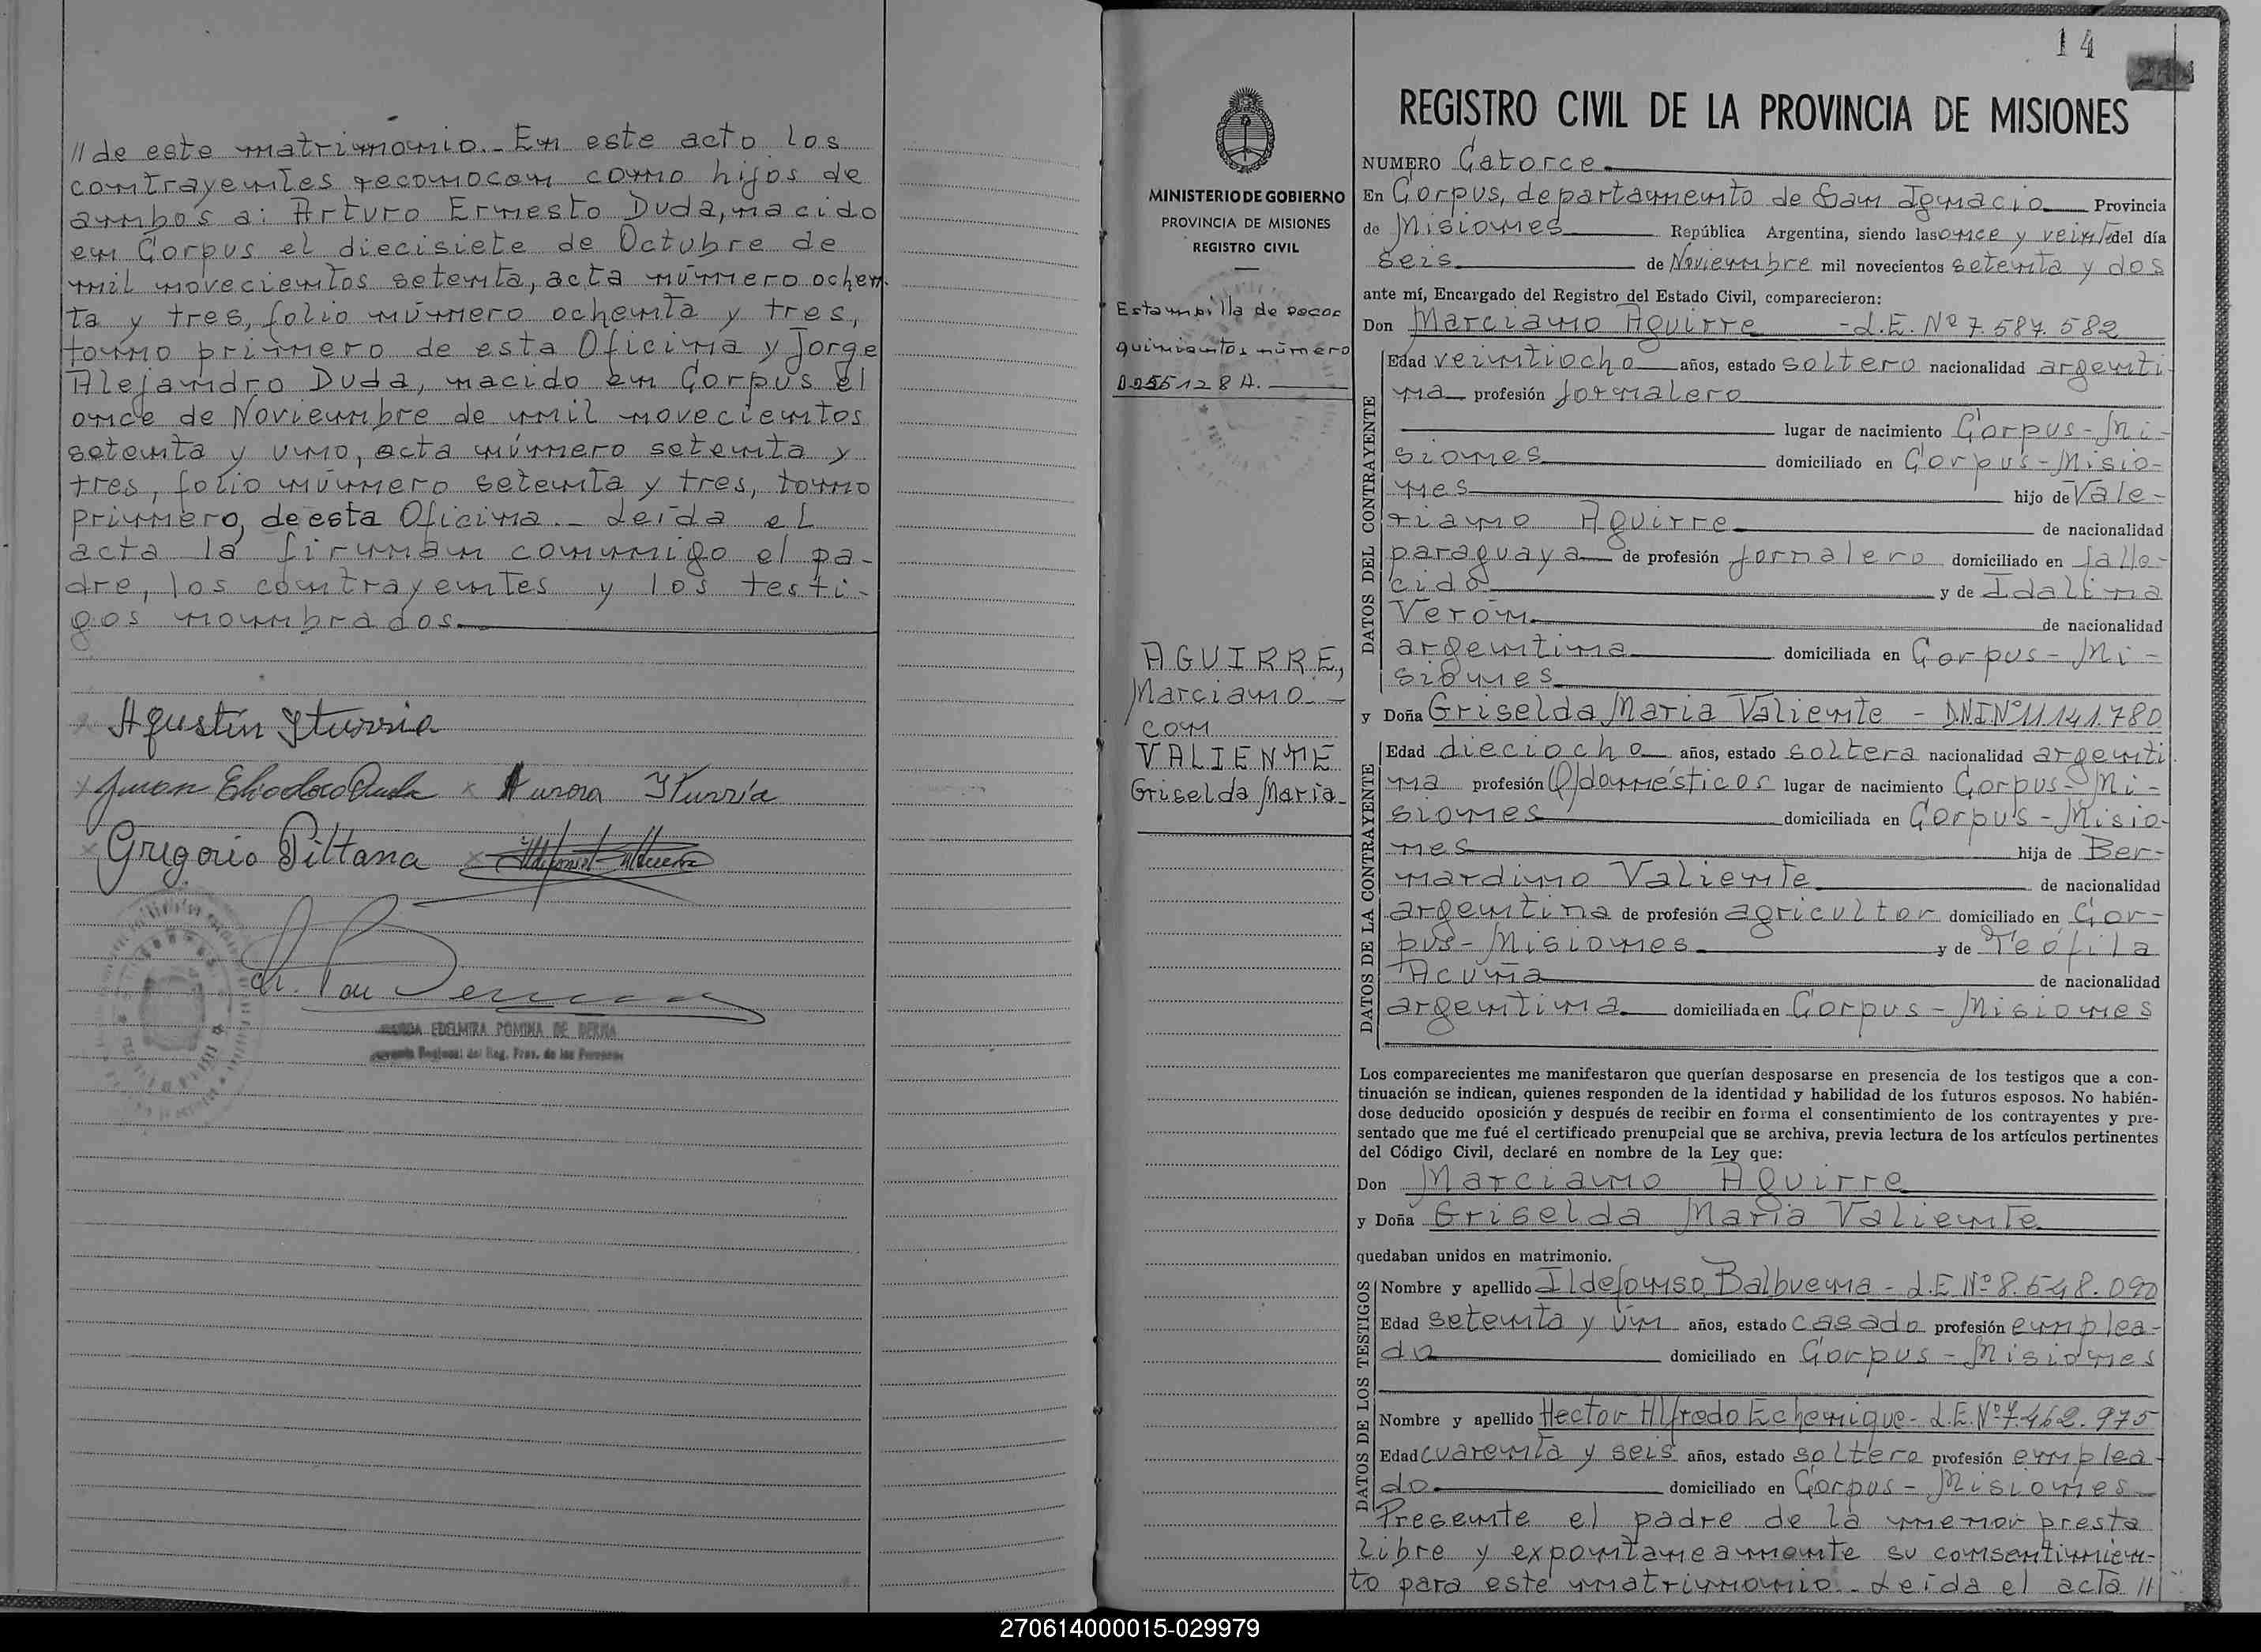 // de este matrimonio.- En este acto los
contrayentes reconocen como hijos de
ambos a: Arturo Ernesto Duda, nacido
en Corpus el diecisiete de Octubre de
mil novecientos setenta, acta número ochen
ta y tres, folio número ochenta y tres,
tomo primero de esta Oficina y Jorge
Alejandro Duda, nacido en Corpus el
once de Noviembre de mil novecientos
setenta y uno, acta número setenta y
tres, folio número setenta y tres, tomo
primero, de esta Oficina.- Leída el
acta la firman conmigo el pa-
dre, los contrayentes y los testi-
gos nombrados.
Agustín Iturria
Juan Eliodoro Duda x Aurora Iturria
Gregorio Pittana
EDELMIRA POMINA DE BERNA
Regional del Reg. Prov. de las Personas
14
MINISTERIO DE GOBIERNO
PROVINCIA DE MISIONES
REGISTRO CIVIL
Estampilla de pesos
quinientos número
AGUIRRE,
Marciano.-
con
VALIENTE
Griselda María.
REGISTRO CIVIL DE LA PROVINCIA DE MISIONES
NUMERO Catorce
En Corpus, departamento de San Ignacio Provincia
de Misiones República Argentina, siendo las once y veinte del día
seis de Noviembre mil novecientos setenta y dos
ante mí, Encargado del Registro del Estado Civil, comparecieron:
Don Marciano Aguirre - L.E. Nº 7.587.582
DATOS DEL CONTRAYENTE
Edad veintiocho años, estado soltero nacionalidad argenti
na profesión Jornalero
lugar de nacimiento Corpus - Mi-
siones domiciliado en Corpus - Misio-
nes hijo de Vale-
riano Aguirre de nacionalidad
paraguaya de profesión jornalero domiciliado en falle-
cido y de Idalina
Verón de nacionalidad
argentina domiciliada en Corpus - Mi-
siones
y Doña Griselda María Valiente - D.N.I Nº 11.141.780
DATOS DE LA CONTRAYENTE
Edad dieciocho años, estado soltera nacionalidad argenti
na profesión Q/domésticos lugar de nacimiento Corpus - Mi-
siones domiciliada en Corpus - Misio-
nes hija de Ber-
nardino Valiente de nacionalidad
argentina de profesión agricultor domiciliado en Cor-
pus - Misiones y de Teófila
Acuña de nacionalidad
argentina domiciliada en Corpus - Misiones
Los comparecientes me manifestaron que querían desposarse en presencia de los testigos que a con-
tinuación se indican, quienes responden de la identidad y habilidad de los futuros esposos. No habién-
dose deducido oposición y después de recibir en forma el consentimiento de los contrayentes y pre-
sentado que me fué el certificado prenupcial que se archiva, previa lectura de los artículos pertinentes
del Código Civil, declaré en nombre de la Ley que:
Don Marciano Aguirre
y Doña Griselda María Valiente
quedaban unidos en matrimonio.
DATOS DE LOS TESTIGOS
Nombre y apellido Ildefonso Balbuena - L.E Nº 8.548.090
Edad setenta y un años, estado casado profesión emplea-
do domiciliado en Corpus - Misiones
Nombre y apellido Hector Alfredo Echenique - L.E. Nº 7.462.975
Edad cuarenta y seis años, estado soltero profesión emplea-
do domiciliado en Corpus - Misiones
Presente el padre de la menor presta
libre y expontaneamente su consentimien-
to para este matrimonio.- Leída el acta //
270614000015-029979